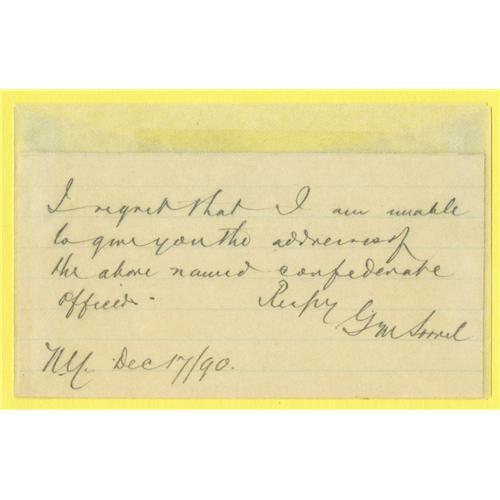 I regret that I am unable
to give you the addresses of
the above named confederate
officers - Respy
G M Sorrel
N.Y. Dec 17/90.